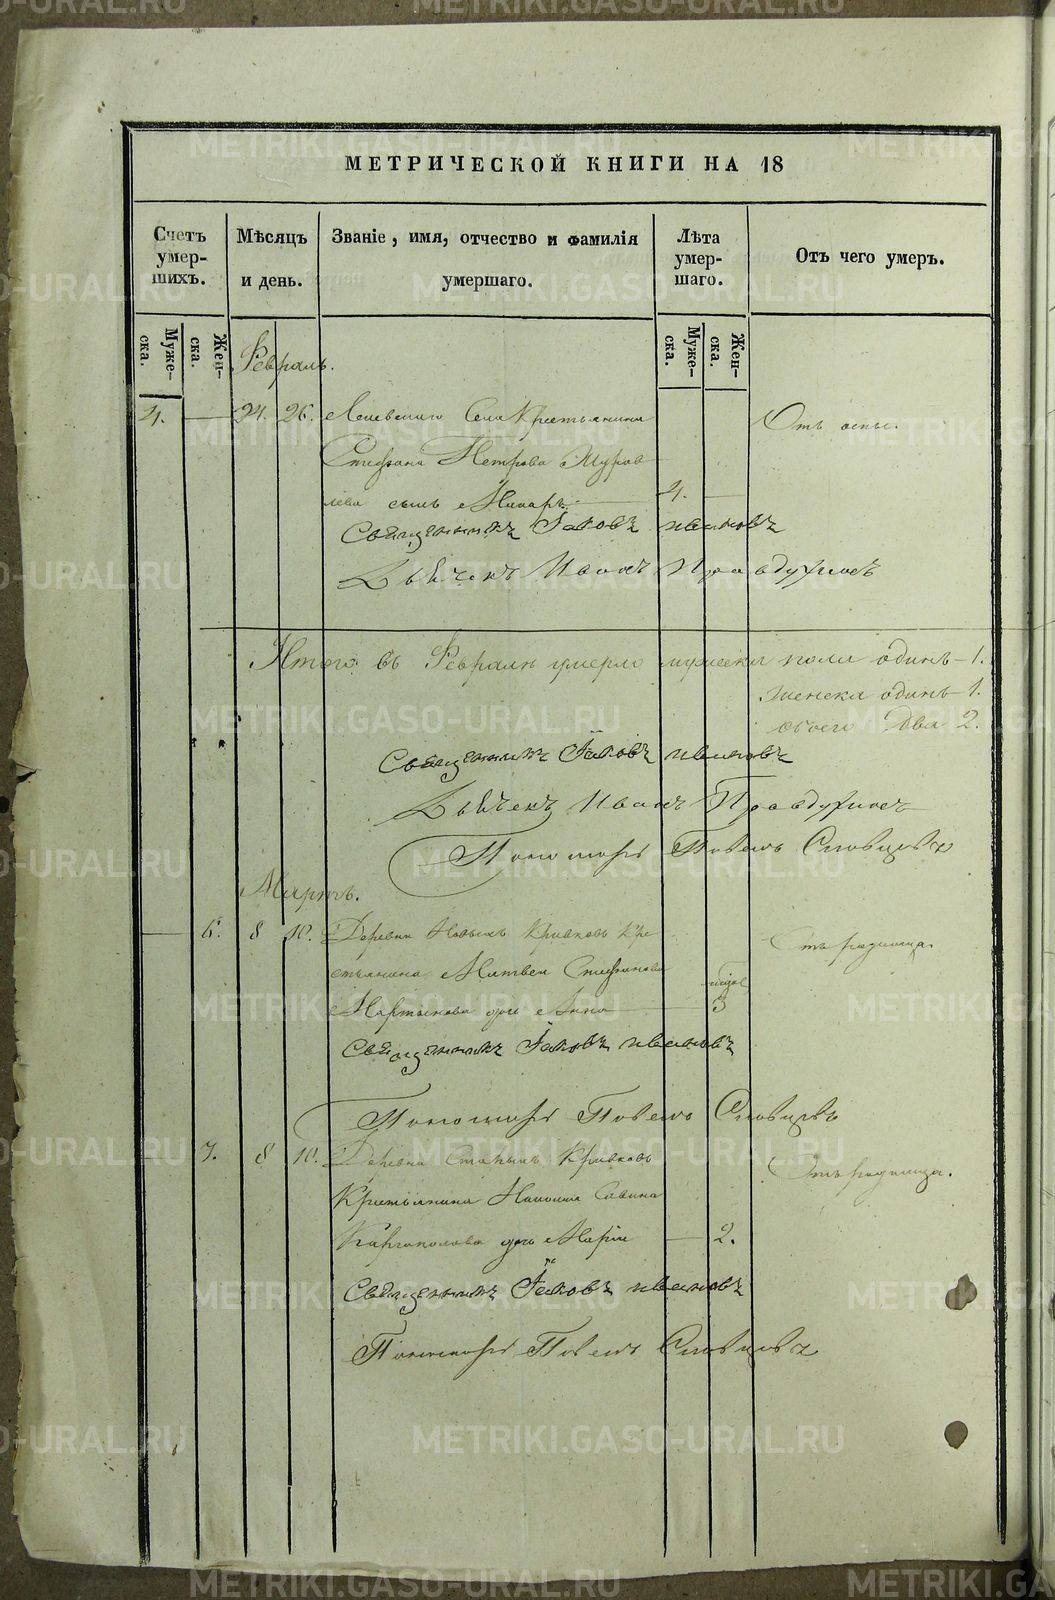 МЕТРИЧЕСКОЙ КНИГИ НА 18
Счетъ умер-шихъ.
Мѣсяцъ и день.
Званіе, имя, отчество и фамилія умершаго.
Лѣта умер-шаго.
Отъ чего умеръ.
Муже-ска.
Жен-ска.
Муже-ска.
Жен-ска.
Февраль.
4. 24. 26. Села Крестьянина Отъ оспы.
Стефана Петрова Журав
лева сынъ Макаръ 4.
Священникъ Іаковъ Ивановъ
Дьячекъ Иванъ Правдухинъ
Итого въ Февралѣ умерло мужеска пола одинъ - 1.
женска одинъ - 1.
обоего два 2.
Священникъ Іаковъ Ивановъ
Дьячекъ Иванъ Правдухинъ
Пономарь Павелъ Словцовъ
Мартъ.
6. 8 10. Деревни Новыхъ Кривковъ Кре Отъ родимца.
стьянина Матвея Стефанова
Мартынова дочь Анна 3
Священникъ Іаковъ Ивановъ
Пономарь Павелъ Словцовъ
7. 8 10. Деревни Старыхъ Кривковъ Отъ родимца.
Крестьянина Савина
Каргаполова дочь Марія 2.
Священникъ Іаковъ Ивановъ
Пономарь Павелъ Словцовъ
METRIKI.GASO-URAL.RU